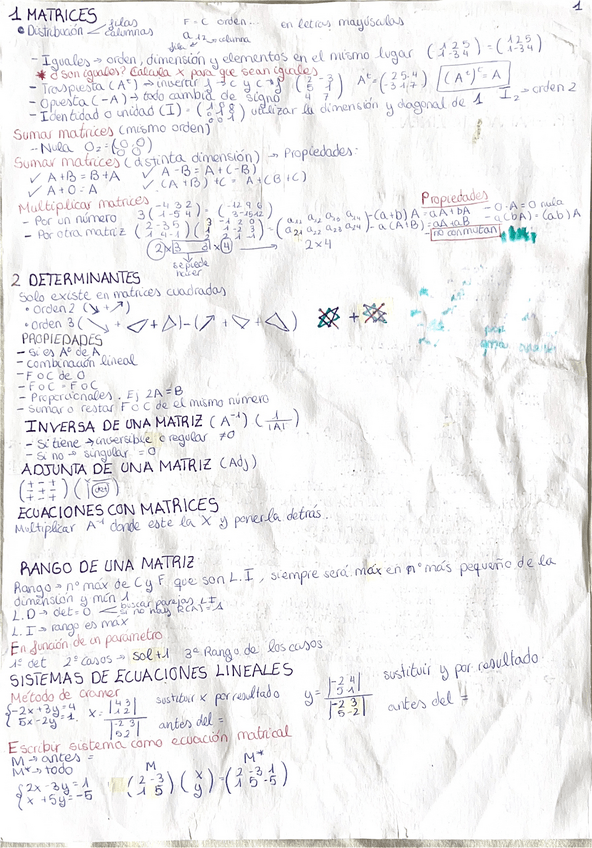 1
1 MATRICES
• Distribución filas columnas F = C orden... en letras mayúsculas
a 12 → columna
fila
- Iguales → orden, dimensión y elementos en el mismo lugar (1 2 5 / 1 -3 4) = (1 2 5 / 1 -3 4)
* ¿son iguales? Calcula x para que sean iguales
- Traspuesta (Aᵗ) → invertir f → c y c → f (2 -3 / 5 -1 / 4 7) Aᵗ = (2 5 4 / -3 -1 7) (Aᵗ)ᵗ = A
- Opuesta (-A) → todo cambia de signo
- Identidad o unidad (I) = (1 0 0 / 0 1 0 / 0 0 1) utilizar la dimensión y diagonal de 1 I₂ → orden 2
Sumar matrices (mismo orden)
- Nula O₂ = (0 0 / 0 0)
Sumar matrices (distinta dimensión) → Propiedades:
✓ A+B = B+A ✓ A-B = A+(-B)
✓ A+0 = A ✓ (A+B)+C = A+(B+C)
Multiplicar matrices Propiedades
- Por un número 3 (-4 3 2 / 1 -5 4) = (-12 9 6 / 3 -15 12) - (a+b)A = aA+bA - 0·A = 0 nula
- Por otra matriz - a(A+B) = aA+aB - a(bA) = (ab)A
no conmutan
2 x 3 3 x 4 → 2x4
se puede hacer
2 DETERMINANTES
Solo existe en matrices cuadradas
• Orden 2
• orden 3
PROPIEDADES
- Si es Aᵗ de A
- combinación lineal
- F o C de 0
- F o C = F o C
- Proporcionales. Ej 2A = B
- Sumar o restar F o C de el mismo número
INVERSA DE UNA MATRIZ (A⁻¹) (1/|A|)
- Si tiene → inversible o regular ≠0
- Si no → singular = 0
ADJUNTA DE UNA MATRIZ (Adj)
(+ - + / - + - / + - +)
ECUACIONES CON MATRICES
Multiplicar A⁻¹ donde este la X y ponerla detrás.
RANGO DE UNA MATRIZ
Rango → nº máx de C y F que son L.I, siempre será máx en nº más pequeño de la
dimensión y mín 1
L.D → det = 0 buscar parejas L.I
si no hay R(A) = 1
L.I → rango es máx
En función de un parámetro
1º det 2º casos → sol+1 3º Rango de los casos
SISTEMAS DE ECUACIONES LINEALES
Método de cramer
{-2x+3y=4 / 5x-2y=1. x = |4 3 / 1 2| / |-2 3 / 5 2| sustituir x por resultado antes del = y = |-2 4 / 5 1| / |-2 3 / 5 -2| sustituir y por resultado antes del =
Escribir sistema como ecuación matricial
M → antes =
M* → todo
M M*
{2x-3y=1 / x+5y=-5 (2 -3 / 1 5) (x / y) = (2 -3 1 / 1 5 -5)